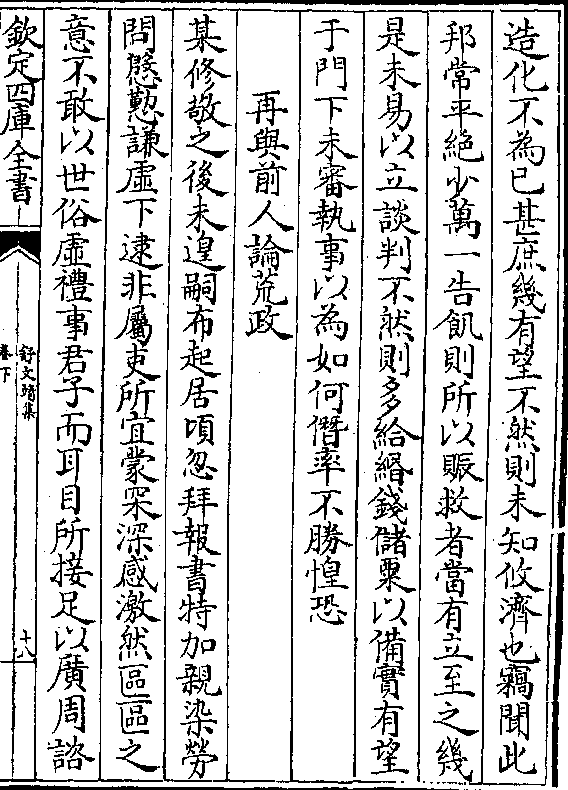 造化不為已甚庶幾有望不然則未知攸濟也竊聞此
邦常平絶少萬一告飢則所以賑救者當有立至之幾
是未易以立談判不然則多給緡錢儲粟以備實有望
于門下未審執事以為如何僭率不勝惶恐
再與前人論荒政
某修敬之後未遑嗣布起居頃忽拜報書特加親染勞
問慇懃謙虚下逮非屬吏所宜蒙罙深感激然區區之
意不敢以世俗虚禮事君子而耳目所接足以廣周諮
欽定四庫全書
舒文靖集
卷下
十八